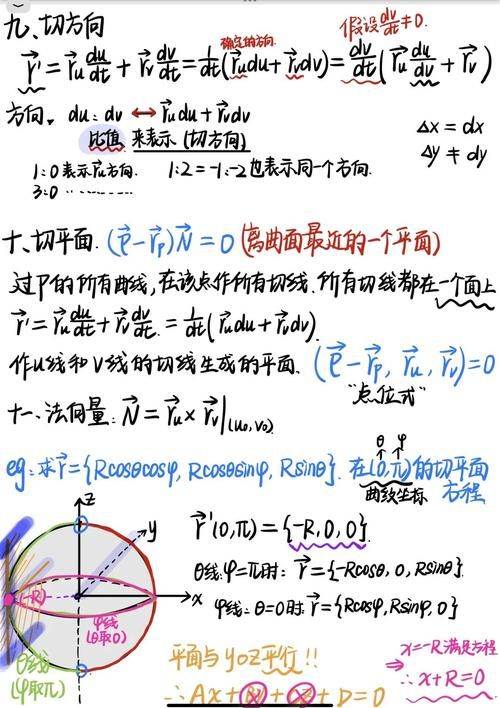 九、切方向
确定的方向
假设dv/dt≠0.
r⃗' = r⃗u du/dt + r⃗v dv/dt = 1/dt(r⃗udu+r⃗vdv) = dv/dt(r⃗u du/dv + r⃗v)
方向. du:dv ↔ r⃗udu+r⃗vdv
比值 来表示(切方向)
Δx = dx
Δy ≠ dy
1:0表示r⃗u方向. 1:2=-1:-2也表示同一个方向.
3:0 ………
十、切平面. (ρ⃗-r⃗p)N⃗=0 (离曲面最近的一个平面)
过P的所有曲线,在该点作所有切线.所有切线都在一个面上
r⃗'=r⃗u du/dt + r⃗v dv/dt = 1/dt(r⃗udu+r⃗vdv).
作u线和v线的切线生成的平面. (ρ⃗-r⃗p, r⃗u, r⃗v)=0
"点位式"
十一、法向量: N⃗=r⃗u×r⃗v|(u0,v0)
θ φ
eg:求r⃗={Rcosθcosφ, Rcosθsinφ, Rsinθ}. 在(0,π)的切平面
曲纹坐标 方程
z
y
x
(-R)
φ线
(θ取0)
θ线
(φ取π)
r⃗'(0,π)={-R,0,0}
θ线:φ=π时: r⃗={-Rcosθ, 0, Rsinθ}.
φ线: θ=0时 r⃗={Rcosφ, Rsinφ, 0}
平面与yoz平行!!
∴Ax+By+Cz+D=0
x=-R满足方程
⇒
∴x+R=0